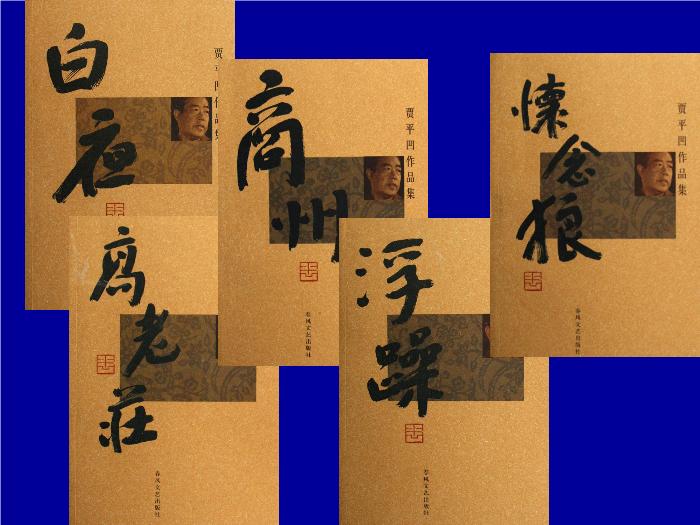 白夜
贾平凹作品集
商州
贾平凹作品集
春风文艺出版社
怀念狼
贾平凹作品集
春风文艺出版社
高老莊
春风文艺出版社
浮躁
春风文艺出版社